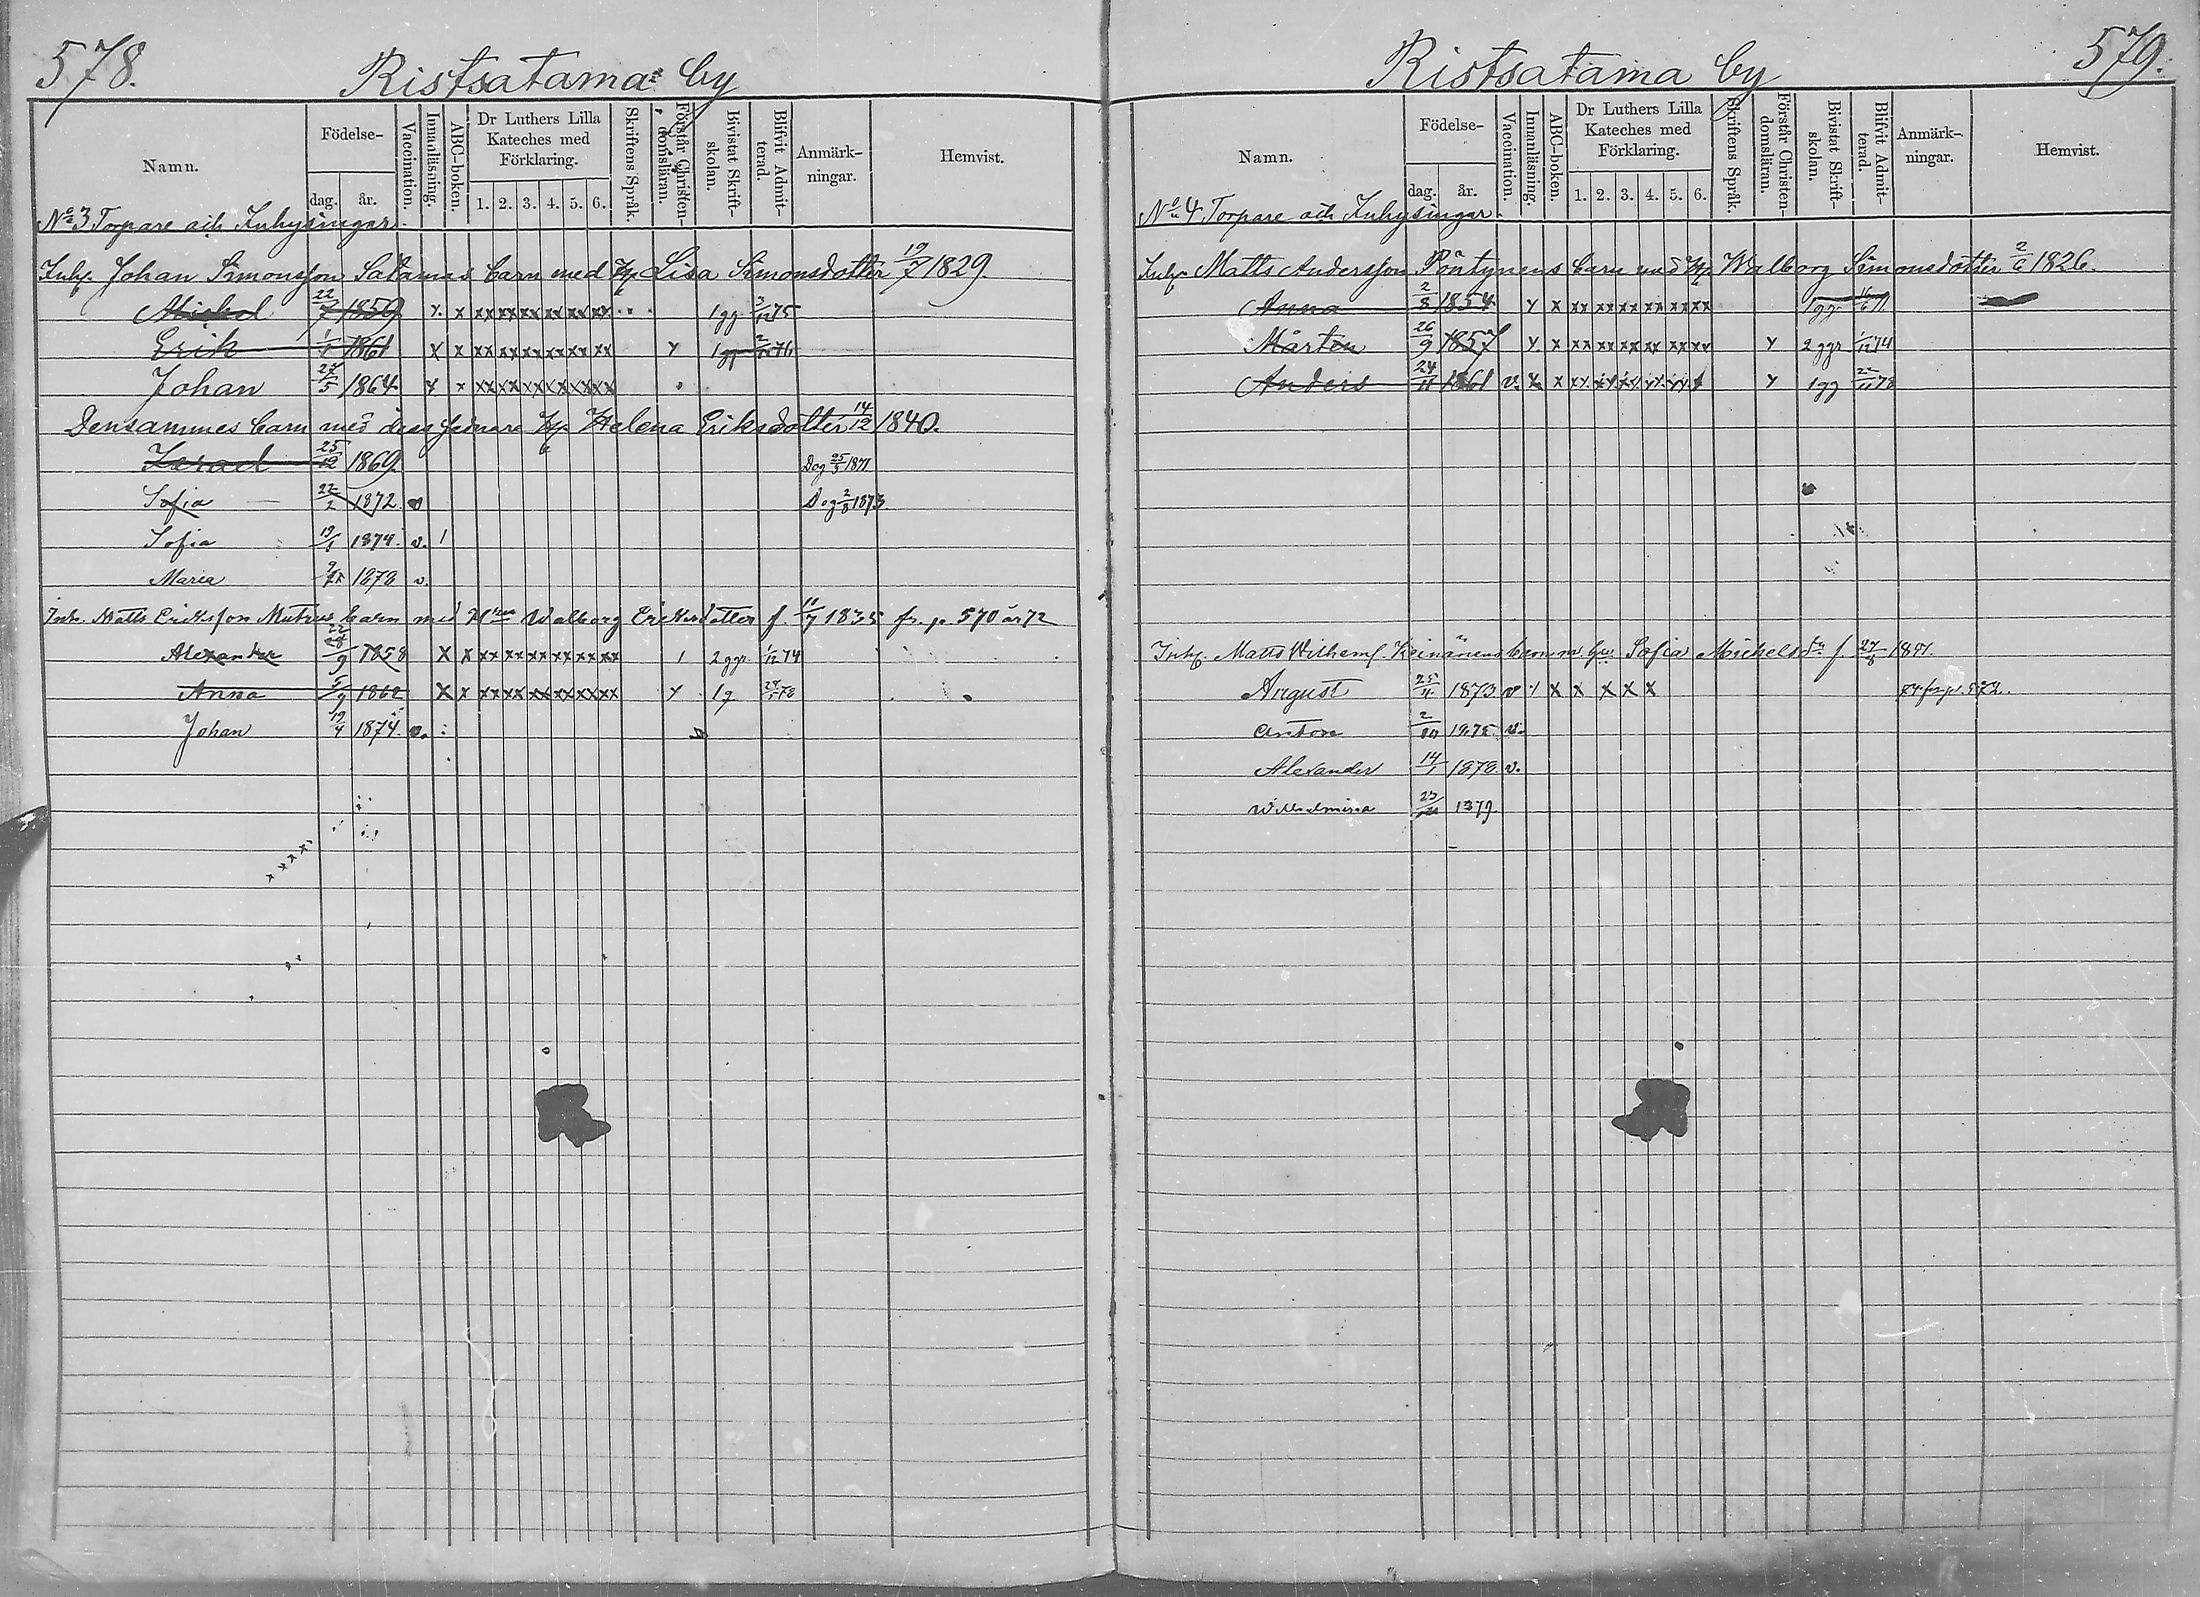 578.
Ristsatama by
Namn.
Födelse-
dag.
år.
Vaccination.
Innanläsning.
ABC-boken.
Dr Luthers Lilla
Kateches med
Förklaring.
1. 2. 3. 4. 5. 6.
Skriftens Språk.
Förstår Christen-
domsläran.
Bivistat Skrift-
skolan.
Blifvit Admit-
terad.
Anmärk-
ningar.
Hemvist.
No 3 Torpare och Inhysingar.
Inh. Johan Simonsson Satamas barn med H. Lisa Simonsdotter 19/7 1829.
Michel 22/7 1859 x x xx xx xx xx xx xx 1 gg 3/12 75
Erik 1/1 1861 x x xx xx xx xx xx xx x 1 gg 2/12 76
Johan 27/5 1864 x x xx xx xx xx xx xx
Densammes barn med dess senare H. Helena Eriksdotter 14/12 1840.
Israel 25/12 1869 Dog 25/5 1871
Sofia 22/2 1872 v Dog 2/8 1873
Sofia 19/1 1874 v. 1
Maria 1878 v.
Inh. Matts Eriksson barn med Walborg Eriksdotter f. 11/7 1835 fr. p. 570 år 72
Alexander 22/9 1858 x x xx xx xx xx xx xx 1 2 ggr 1/12 74
Anna 5/9 1862 x x xx xx xx xx xx xx x 1 g 78
Johan 19/4 1874 v.
579.
Ristsatama by
Namn.
Födelse-
dag.
år.
Vaccination.
Innanläsning.
ABC-boken.
Dr Luthers Lilla
Kateches med
Förklaring.
1. 2. 3. 4. 5. 6.
Skriftens Språk.
Förstår Christen-
domsläran.
Bivistat Skrift-
skolan.
Blifvit Admit-
terad.
Anmärk-
ningar.
Hemvist.
No 4. Torpare och Inhysingar.
Inh. Matts Andersson Pöntynens barn med H. Walborg Simonsdotter 2/6 1826.
Anna 2/8 1854 x x xx xx xx xx xx xx 1 gg 16/6 71
Mårten 26/9 1857 x x xx xx xx xx xx xx x 2 ggr 1/12 74
Anders 24/11 1861 v. x x xx xx xx xx xx x x 1 gg 22/11 78
Inh. Matts Wilhelm. Keinänens barn m. hu. Sofia Michelsdr f. 27/8
August 25/11 1873 v x x x x x x fr. p. 572.
Anton 2/10 1875 v.
Alexander 14/1 1878 v.
Wilhelmina 1879